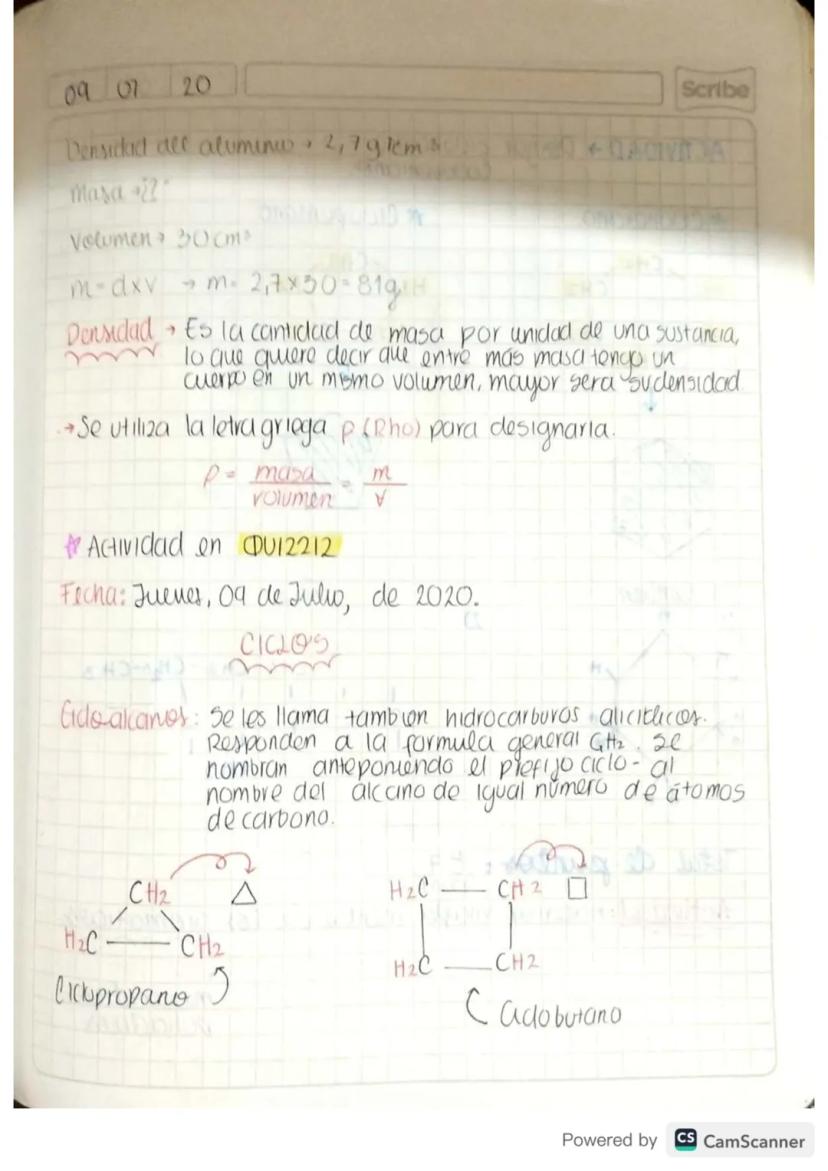 09 07 20 Scribe
Densidad del aluminio → 2,7 g/cm³
masa → ??
Volumen → 30 cm³
m = d x v → m = 2,7 x 30 = 81g
Densidad → Es la cantidad de masa por unidad de una sustancia,
lo que quiere decir que entre más masa tenga un
cuerpo en un mismo volumen, mayor sera su densidad
→ Se utiliza la letra griega ρ (Rho) para designarla.
ρ = masa / volumen = m / v
☆ Actividad en
Fecha: Jueves, 09 de Julio, de 2020.
CICLOS
Cicloalcanos: Se les llama tambien hidrocarburos aliciclicos.
Responden a la formula general CnH2. Se
nombran anteponiendo el prefijo ciclo- al
nombre del alcano de igual número de átomos
de carbono.
CH2 △ H2C — CH2 □
H2C — CH2 H2C — CH2
Ciclopropano Ciclobutano
Powered by CS CamScanner